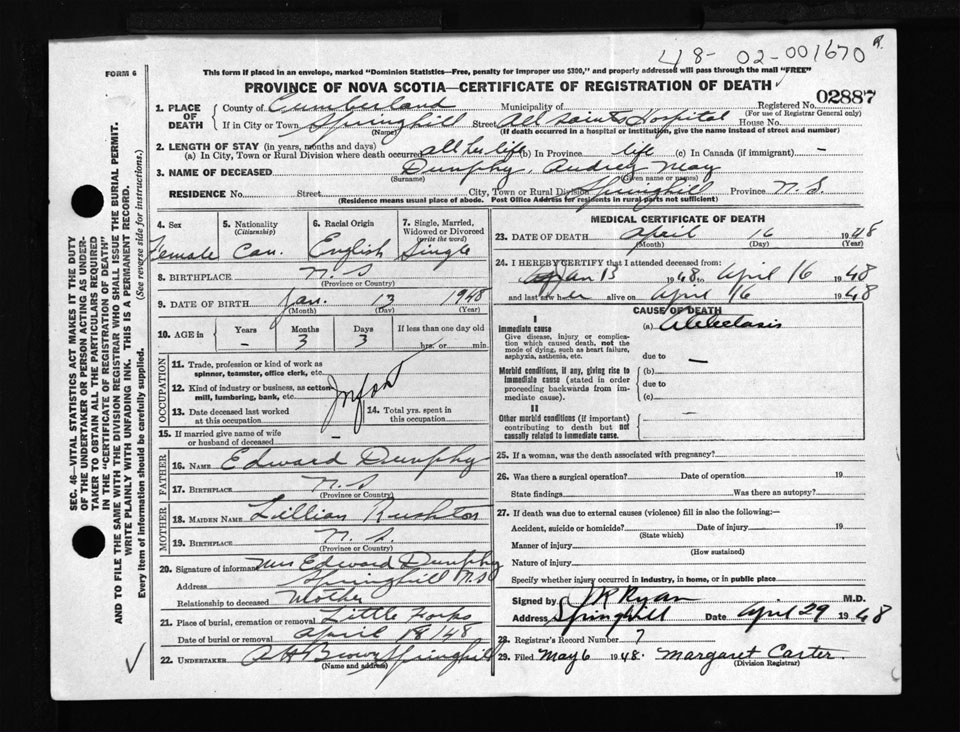 48- 02-001670 R.
FORM 6
This form if placed in an envelope, marked "Dominion Statistics—Free, penalty for improper use $300," and properly addressed will pass through the mail "FREE"
PROVINCE OF NOVA SCOTIA—CERTIFICATE OF REGISTRATION OF DEATH
02887
1. PLACE OF DEATH County of Cumberland Municipality of Registered No. (For use of Registrar General only)
If in City or Town Springhill (Name) Street All Saints Hospital House No.
(If death occurred in a hospital or institution, give the name instead of street and number)
2. LENGTH OF STAY (in years, months and days)
(a) In City, Town or Rural Division where death occurred all her life (b) In Province life (c) In Canada (if immigrant) —
3. NAME OF DECEASED Dunphy, Audrey May
(Surname) (Given name or names)
RESIDENCE No. Street City, Town or Rural Division Springhill Province N.S.
(Residence means usual place of abode. Post Office Address for residents in rural parts not sufficient)
4. Sex Female
5. Nationality (Citizenship) Can.
6. Racial Origin English
7. Single, Married, Widowed or Divorced (write the word) Single
8. BIRTHPLACE N.S
(Province or Country)
9. DATE OF BIRTH Jan. 13 1948
(Month) (Day) (Year)
10. AGE in Years – Months 3 Days 3 If less than one day old hrs. or min.
OCCUPATION
11. Trade, profession or kind of work as spinner, teamster, office clerk, etc.
12. Kind of industry or business, as cotton-mill, lumbering, bank, etc.
Infant
13. Date deceased last worked at this occupation
14. Total yrs. spent in this occupation
15. If married give name of wife or husband of deceased —
FATHER
16. NAME Edward Dunphy
17. BIRTHPLACE N.S
(Province or Country)
MOTHER
18. MAIDEN NAME Lillian Rushton
19. BIRTHPLACE N.S.
(Province or Country)
20. Signature of informant Mrs Edward Dunphy
Address Springhill N.S
Relationship to deceased Mother
21. Place of burial, cremation or removal Little Forks
Date of burial or removal April 18/48
22. UNDERTAKER Brown Springhill
(Name and address)
MEDICAL CERTIFICATE OF DEATH
23. DATE OF DEATH April 16 1948
(Month) (Day) (Year)
24. I HEREBY CERTIFY that I attended deceased from:
Jan 13 1948 to April 16 1948
and last saw her alive on April 16 1948
CAUSE OF DEATH
I
Immediate cause
Give disease, injury or complication which caused death, not the mode of dying, such as heart failure, asphyxia, asthenia, etc.
(a) Atelectasis
due to —
Morbid conditions, if any, giving rise to immediate cause (stated in order proceeding backwards from immediate cause).
(b)
due to
(c)
II
Other morbid conditions (if important) contributing to death but not causally related to immediate cause.
25. If a woman, was the death associated with pregnancy?
26. Was there a surgical operation? Date of operation 19
State findings Was there an autopsy?
27. If death was due to external causes (violence) fill in also the following:—
Accident, suicide or homicide? Date of injury 19
(State which)
Manner of injury
(How sustained)
Nature of injury
Specify whether injury occurred in industry, in home, or in public place
Signed by J R Ryan M.D.
Address Springhill Date April 29 1948
28. Registrar's Record Number 7
29. Filed May 6 1948. Margaret Carter.
(Division Registrar)
SEC. 46—VITAL STATISTICS ACT MAKES IT THE DUTY
OF THE UNDERTAKER OR PERSON ACTING AS UNDER-
TAKER TO OBTAIN ALL THE PARTICULARS REQUIRED
IN THE "CERTIFICATE OF REGISTRATION OF DEATH"
AND TO FILE THE SAME WITH THE DIVISION REGISTRAR WHO SHALL ISSUE THE BURIAL PERMIT.
WRITE PLAINLY WITH UNFADING INK. THIS IS A PERMANENT RECORD.
Every item of information should be carefully supplied. (See reverse side for instructions.)